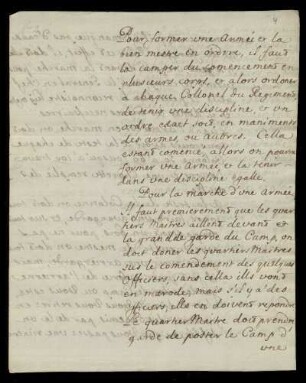 4
Pour former une Armée et la
bien mestre en ordre, il faut
la camper du comencement en
plusieurs corps, et alors ordoner
à chaque Collonel du Regiment
de tenir une discipline et un
ordre exact soit en maniments
des armes, ou autres. Cella
estant comencé, alors on pourra
former une Armée, et la tenir
dans une discipline egalle.
Pour la marche d'une Armée
Il faut premierement que les quar
tiers Maitres aillent devant et
la grande garde du Camp, on
doit doner les quartier Maitres
sur le comendement des quelques
Officiers, sans cella ils vont
en marode, mais s'il y a des
Officiers, ells en doivent repondre
Le quartier Maitre doit prendre
garde de poster le Camp d'
une